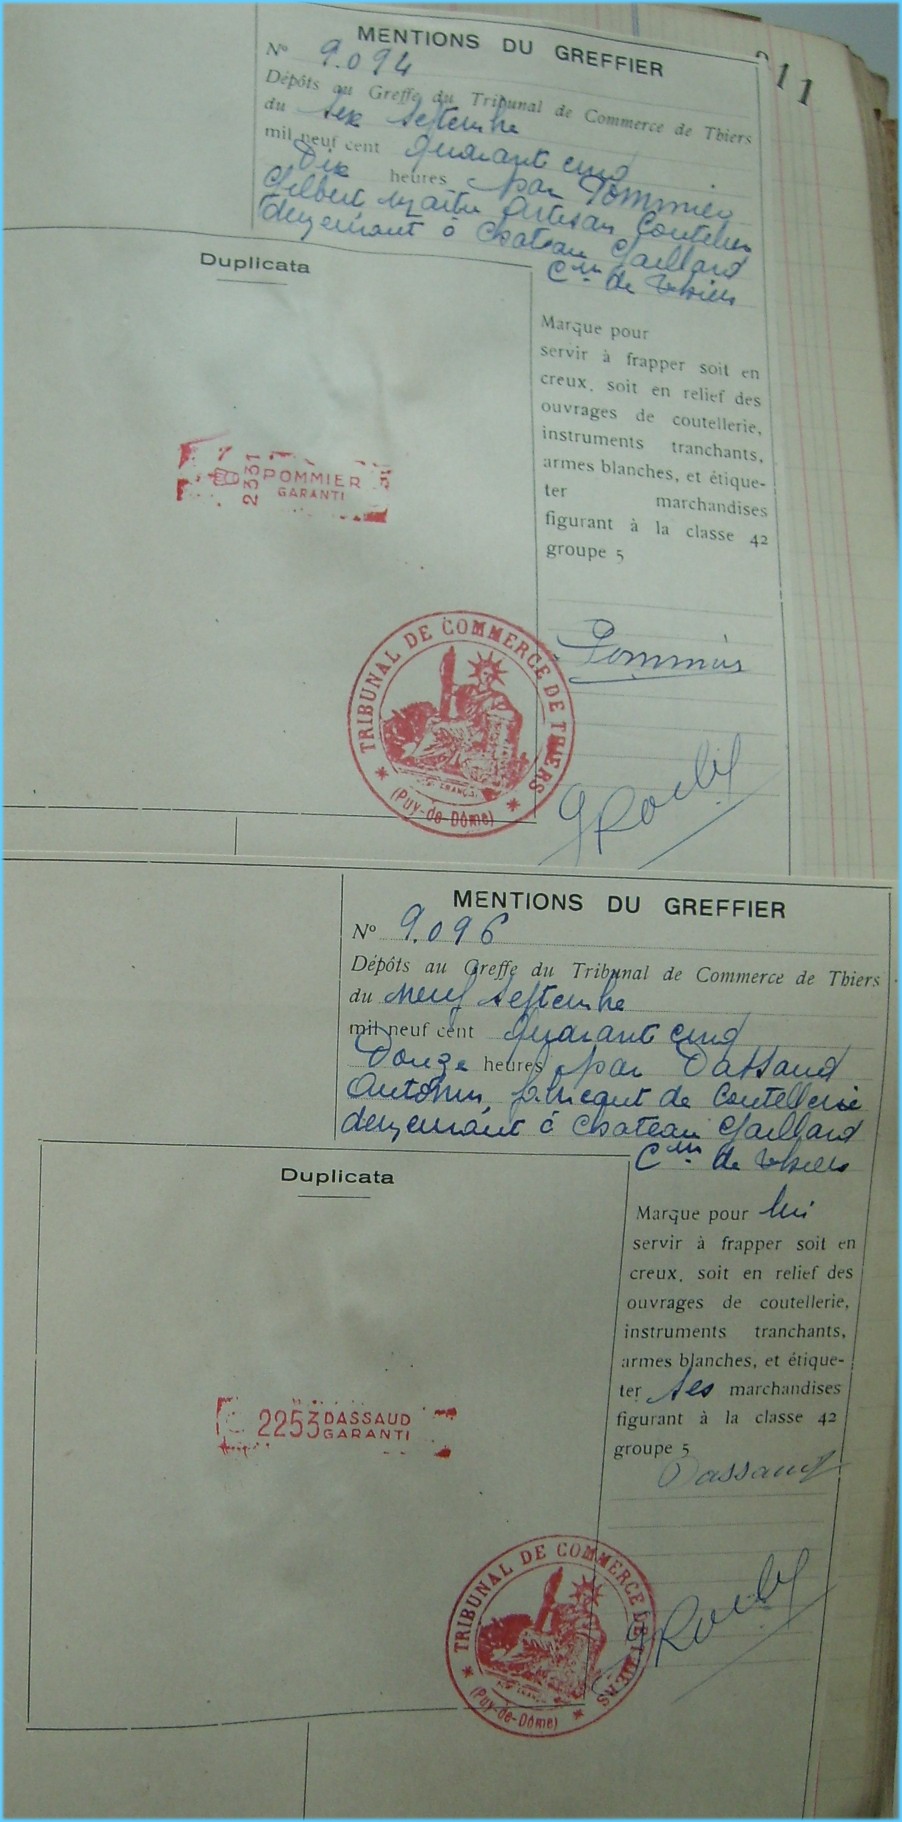 211
MENTIONS DU GREFFIER
Nº 9.094
Dépôts au Greffe du Tribunal de Commerce de Thiers
du Six Septembre
mil neuf cent quarante cinq
Dix heures par Pommier
Gilbert Artisan Coutelier
demeurant à Chateau Gaillard
Cne de Thiers
Duplicata
Marque pour
servir à frapper soit en
creux, soit en relief des
ouvrages de coutellerie,
instruments tranchants,
armes blanches, et étique-
ter marchandises
figurant à la classe 42
groupe 5
2331 POMMIER
GARANTI
Pommier
TRIBUNAL DE COMMERCE DE THIERS
(Puy-de-Dôme)
MENTIONS DU GREFFIER
Nº 9.096
Dépôts au Greffe du Tribunal de Commerce de Thiers
du neuf Septembre
mil neuf cent quarante cinq
Douze heures par Dassaud
Antonin fabricant de Coutellerie
demeurant à Chateau Gaillard
Cne de Thiers
Duplicata
Marque pour lui
servir à frapper soit en
creux, soit en relief des
ouvrages de coutellerie,
instruments tranchants,
armes blanches, et étique-
ter ses marchandises
figurant à la classe 42
groupe 5
2253 DASSAUD
GARANTI
Dassaud
TRIBUNAL DE COMMERCE DE THIERS
(Puy-de-Dôme)